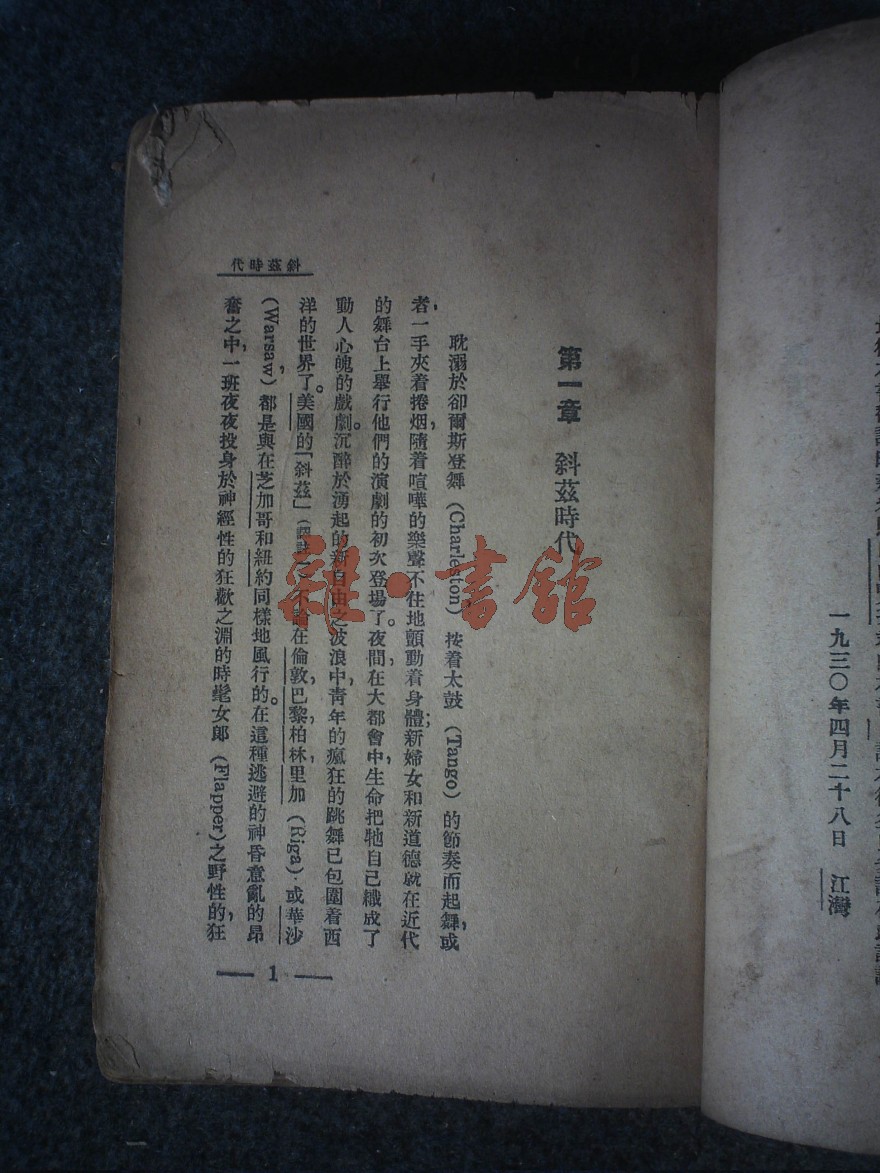 一九三〇年四月二十八日 江灣
第一章 斜茲時代
耽溺於卻爾斯登舞 (Charleston) 按着太鼓 (Tango) 的節奏而起舞，或
者一手夾着捲烟，隨着喧嘩的樂聲不住地顫動着身體；新婦女和新道德就在近代
的舞台上舉行他們的演劇的初次登場了。夜間，在大都會中，生命把牠自己織成了
動人心魄的戲劇。沉醉於湧起的新自由之波浪中，青年的瘋狂的跳舞已包圍着西
洋的世界了。美國的「斜茲」 不論在倫敦，巴黎，柏林，里加 (Riga)，或華沙
(Warsaw) 都是與在芝加哥和紐約同樣地風行的。在這種逃避的神昏意亂的昂
奮之中，一班夜夜投身於神經性的狂歡之淵的時髦女郎 (Flapper) 之野性的，狂
斜茲時代
— 1 —
雜·書館